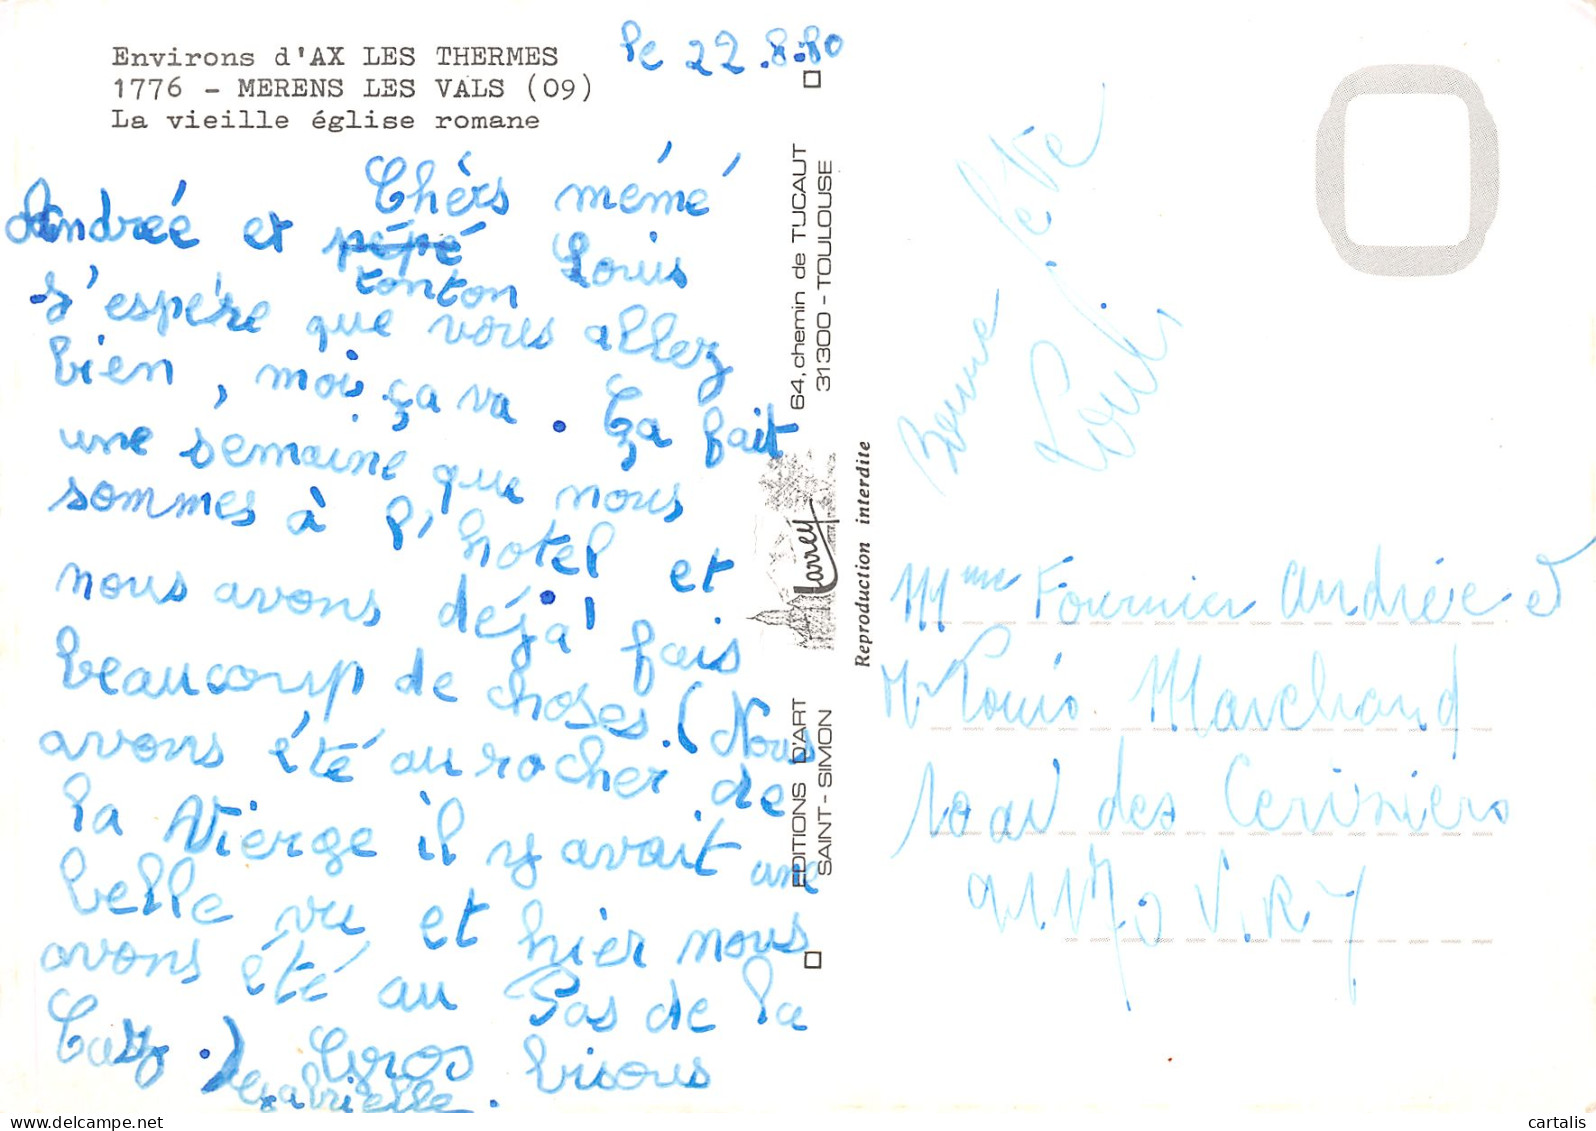 Environs d'AX LES THERMES
1776 - MERENS LES VALS (09)
La vieille église romane
le 22.8.80
Chèrs mémé
Andrée et pépé Louis
tonton
J'espère que vous allez
bien, moi ça va. Ça fait
une semaine que nous
sommes à l'hotel et
nous avons déjà fais
beaucoup de choses. (Nous
avons été au rocher de
la Vierge il y avait une
belle vu et hier nous
avons été au Pas de la
Caz.) Gros bisous
Gabrielle.
EDITIONS D'ART
SAINT-SIMON
Larrey
64, chemin de TUCAUT
31300 - TOULOUSE
Reproduction interdite
Bonne fête
Mme Fournier Andrée et
Mr Louis Marchand
10 av des Cerisiers
VIRY
cartalis